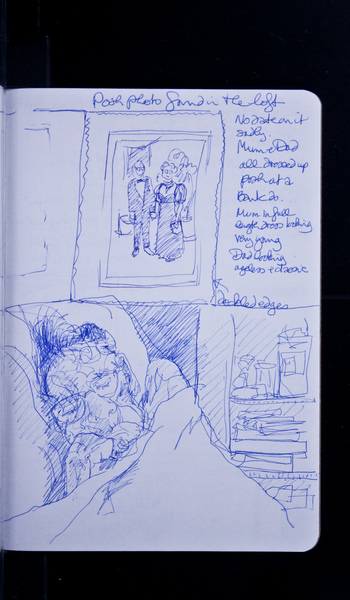 Posh photo found in the loft
No date on it
sadly.
Mum & Dad
all dressed up
posh at a
Bank do.
Mum in full
length dress looking
very young
Dad looking
ageless & classic
deckled edges